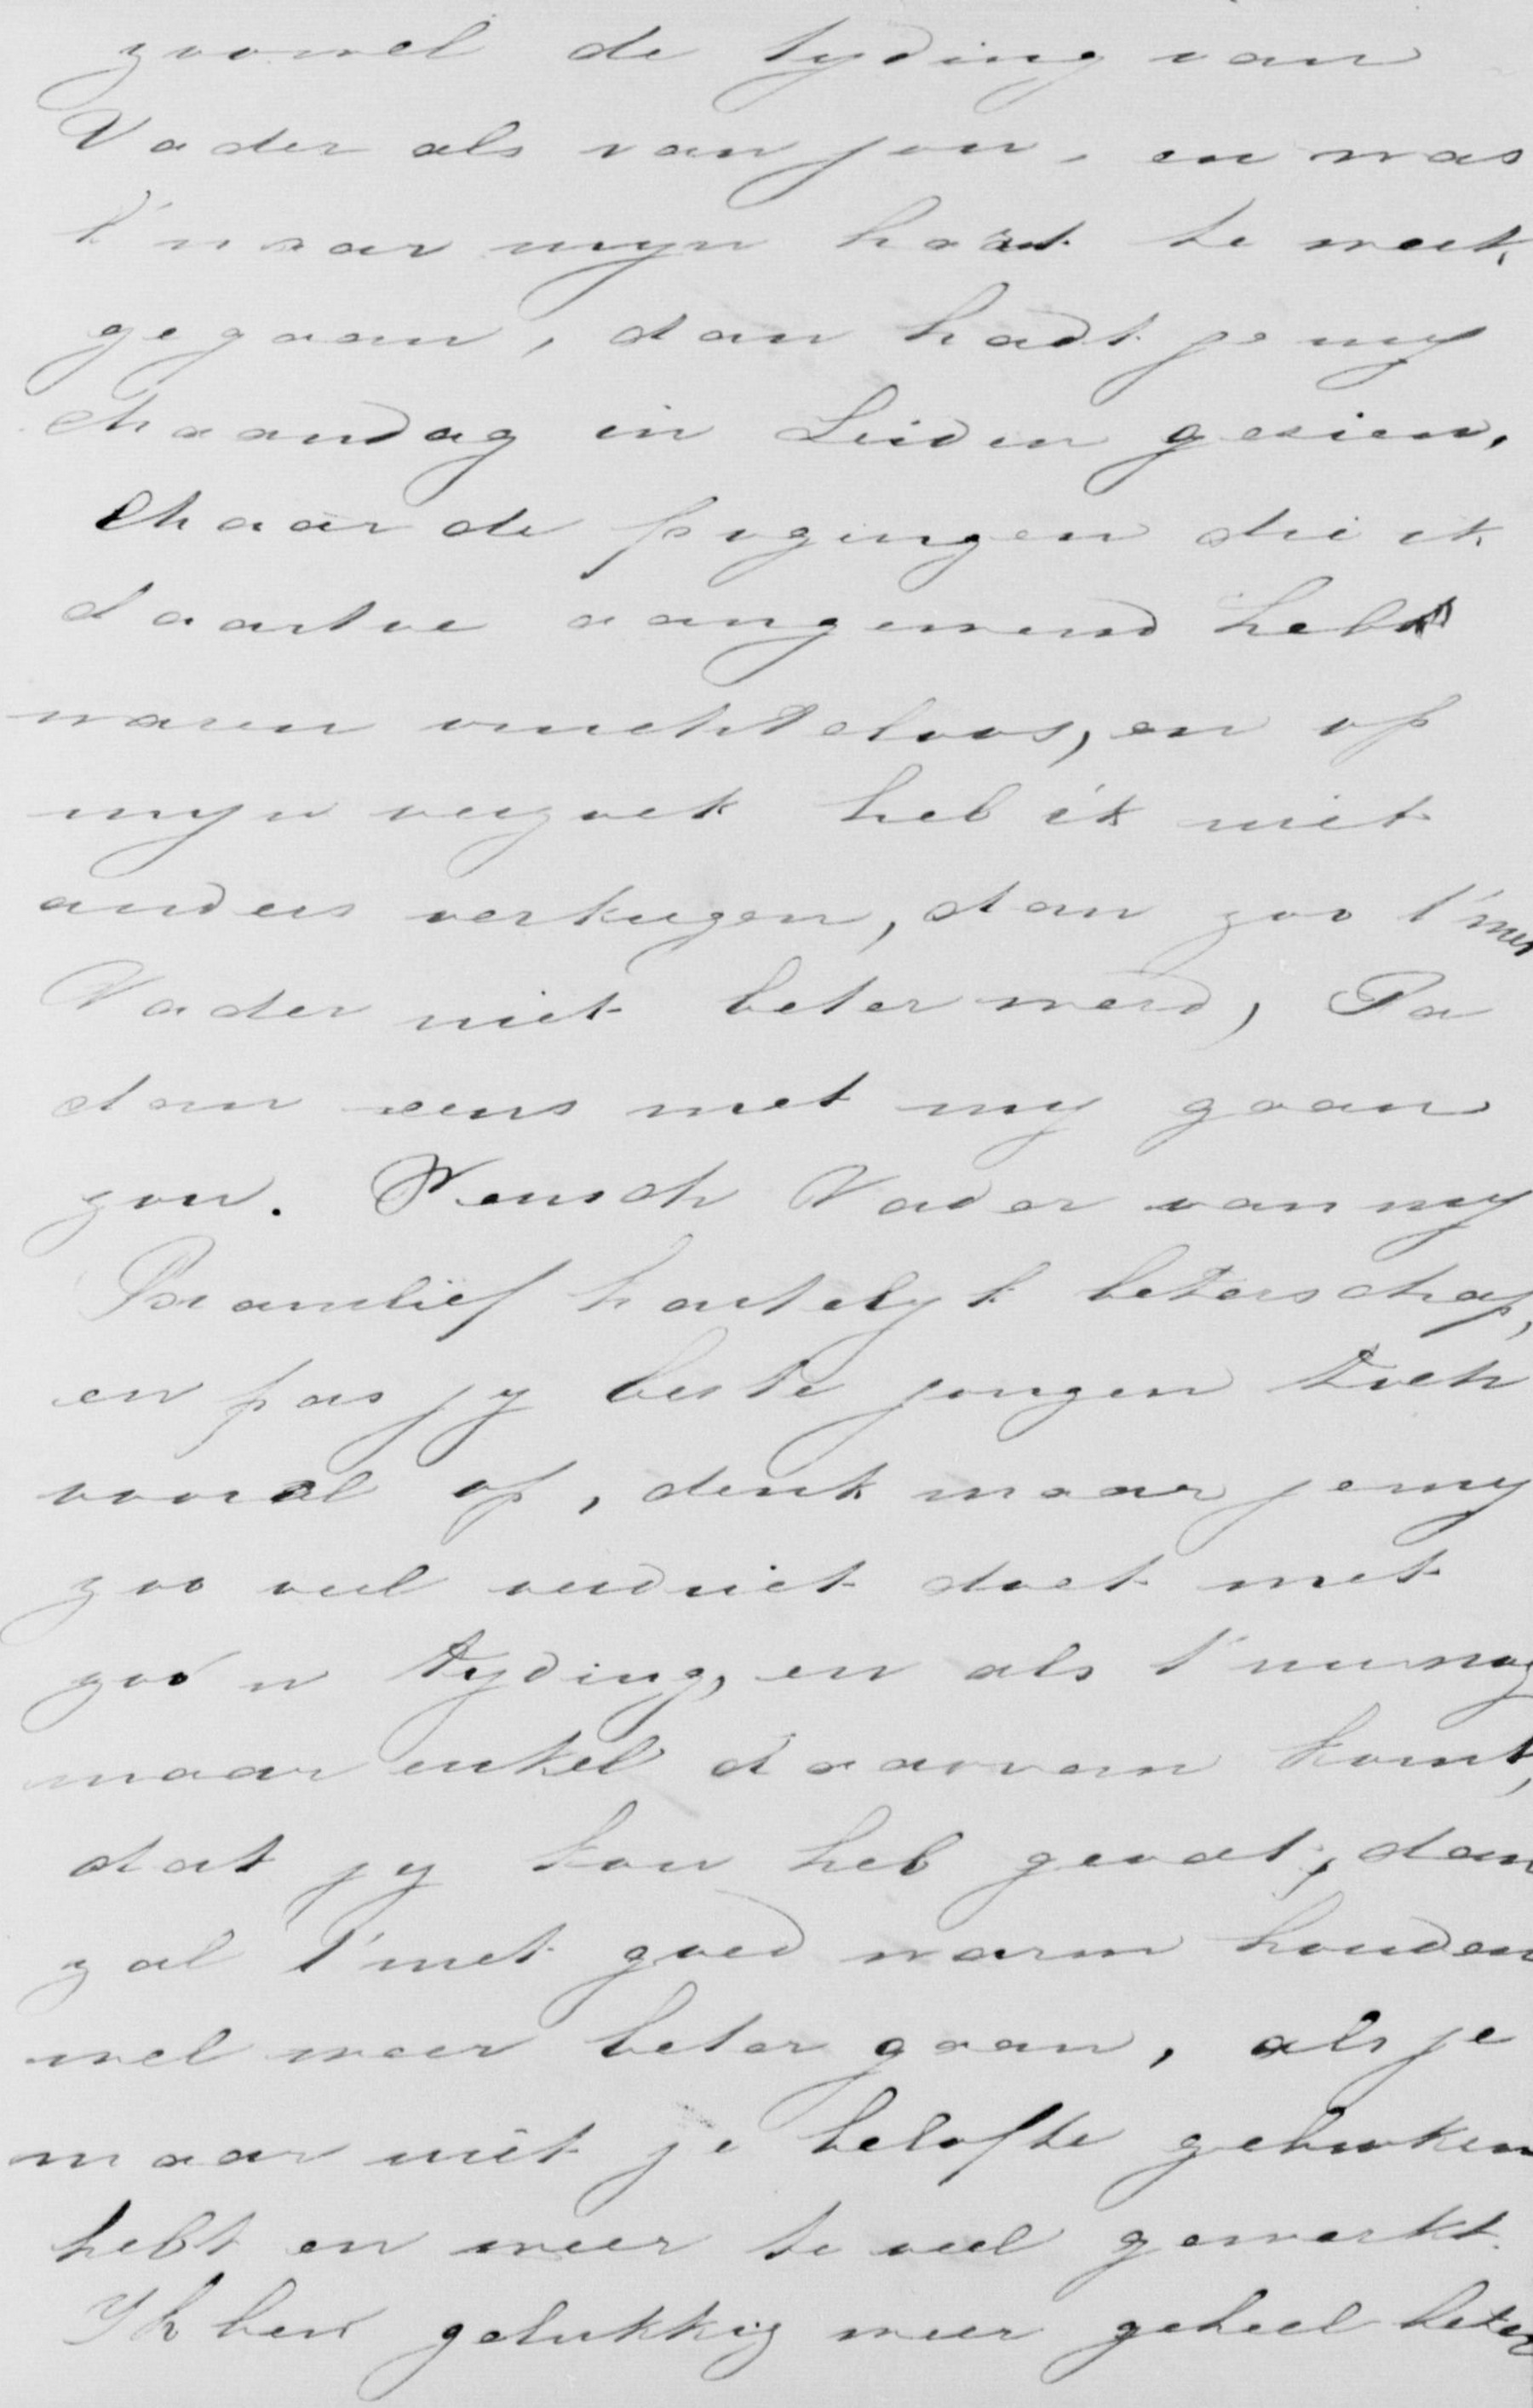 zoowel de tyding van
Vader als van jou, en was
t' naar myn hart te werk
gegaan, dan hadt je my
Maandag in Leiden gezien,
Maar de pogingen die ik
daartoe aangewend heb
waren vruchteloos, en op
myn verzoek heb ik niet
anders verkregen, dan zoo t' met
Vader niet beter werd, Pa
dan eens met my gaan
zou. Wensch Vader van my
Bramlief hartelyk beterschap,
en pas jy beste jongen toch
vooral op, denk maar je my
zoo veel verdriet doet met
zoo'n tyding, en als t' nu nog
maar enkel daarvan komt,
dat jy kou heb gevat, dan
zal t' met goed warm houden
wel weer beter gaan, als je
maar niet je belofte gebroken
hebt en weer te veel gewerkt.
Ik ben gelukkig weer geheel beter